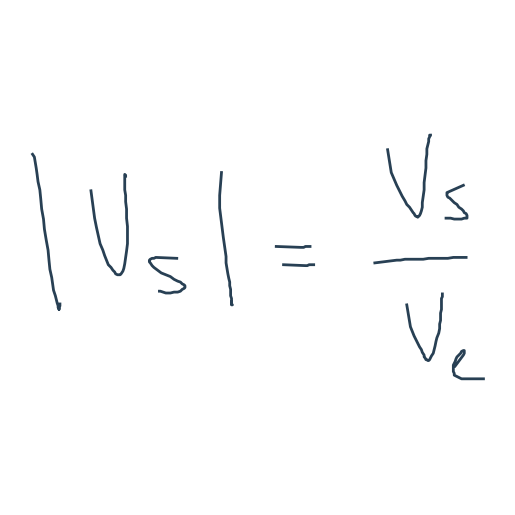 |V_s| = \frac{V_s}{V_e}